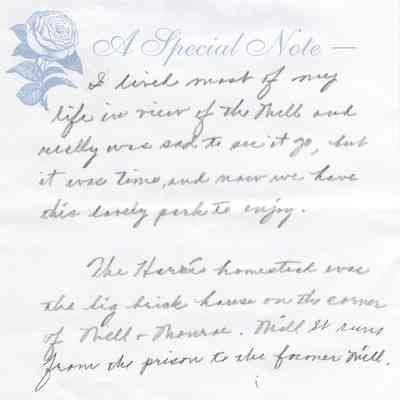 A Special Note —
I lived most of my
life in view of the Mill and
really was sad to see it go, but
it was time, and now we have
this lovely park to enjoy.
The Harris homestead was
the big brick house on the corner
of Mill & Monroe. Mill St runs
from the prison to the former Mill.